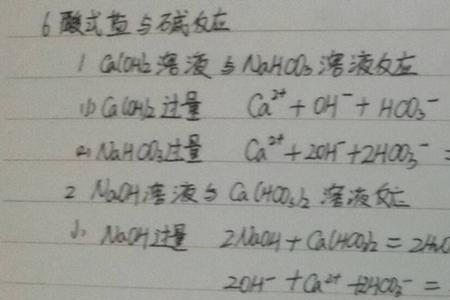 6 酸式盐与碱反应
1 Ca(OH)₂溶液与NaHCO₃溶液反应
(1) Ca(OH)₂过量 Ca²⁺ + OH⁻ + HCO₃⁻
(2) NaHCO₃过量 Ca²⁺ + 2OH⁻ + 2HCO₃⁻ =
2 NaOH溶液与Ca(HCO₃)₂溶液反应
(1. NaOH过量 2NaOH + Ca(HCO₃)₂ = 2H₂O
2OH⁻ + Ca²⁺ + 2HCO₃⁻ =